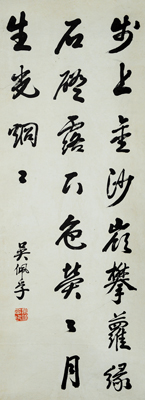 步上金沙嶺攀蘿緣
石磴露下色熒〻月
生光烱〻
吳佩孚